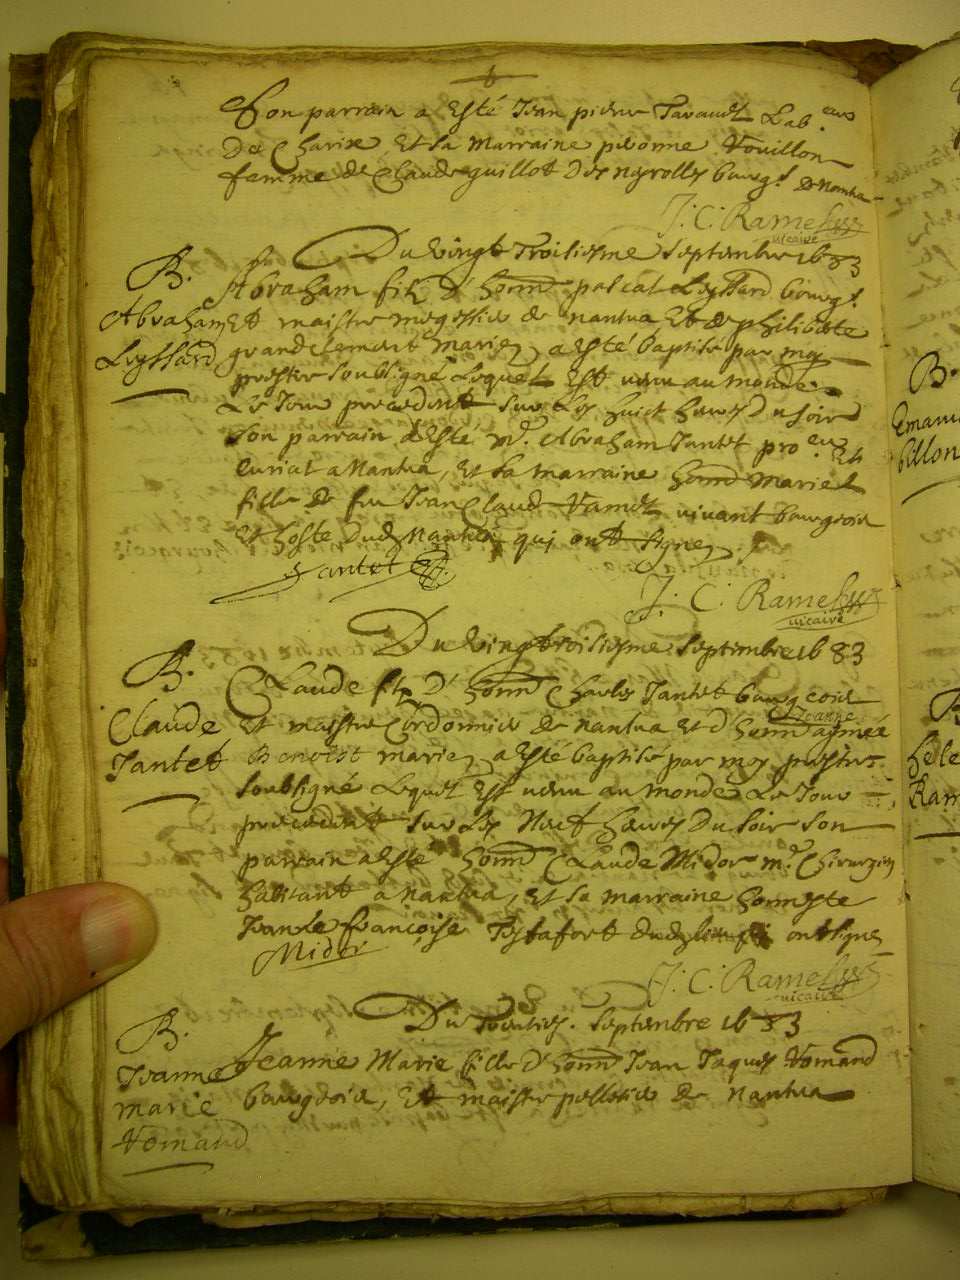 Son parrain a Esté Jean pierre Tavaud Lab.eur
De Charix, Et la Marraine pieronne Vouillon
femme de Claude guillot des neyrolles bourg.s De Nantua
J. C. Rame
vicaire
Du vingt Troisiesme septembre 1683
B.
Abraham
Leyssard
Abraham filz D' honn. pascal Leyssard bourg.s
Et maistre megissier de nantua, Et de philiberte
grandclement mariez, a esté baptisé par moy
prestre soubsigné Lequel Est venu au monde
Le Jour precedent sur les huict heures Du soir
Son parrain a Esté M.e Abraham Jantet pro.eur Et
curial a Nantua, Et La marraine honn. Marie
fille de feu Jean Claude vivant bourgeois
Et hoste dud. Nantua qui ont signez
Jantet
J. C. Rame
vicaire
Du vingtroisiesme septembre 1683
B.
Claude
Jantet
Claude filz D' honn. Charles Jantet bourgeois
Et maistre Cordonnier de nantua Et d'honn. aymée
Jeanne
Benoist mariez, a Esté baptisé par moy prestre
soubsigné Lequel Est venu au monde Le Jour
precedent sur Les Neuf heures Du soir son
parrain a Esté honn. Claude Midor m.e Chirurgien
habitant a nantua, Et sa marraine honneste
Jeanne françoise ont signez
Midor
J. C. Rame
vicaire
Du septembre 1683
B.
Jeanne
marie
Vomand
Jeanne Marie fille D' honn. Jean Jaques Vomand
bourgeois, Et maistre pelletier de nantua